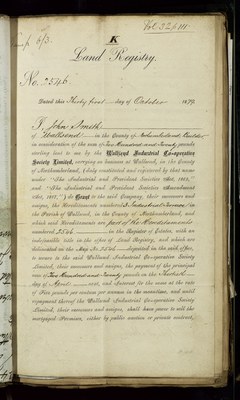 K
Land Registry.
No. 2546
Dated this Thirty first day of October 1879
I, John Smith
of Wallsend in the County of Northumberland, Builder
in consideration of the sum of Two Hundred and Twenty pounds
sterling lent to me by the Wallsend Industrial Co-operative
Society Limited, carrying on business at Wallsend, in the County
of Northumberland, a body constituted and registered by that name
under "The Industrial and Provident Societies Act, 1862,"
and "The Industrial and Provident Societies Amendment
Act, 1871,") do Grant to the said Company, their successors and
assigns, the Hereditaments numbered
the Parish of Wallsend, in the County of Northumberland, and
which said Hereditaments are part of the Hereditaments
numbered 2546 in the Register of Estates, with an
indefeasible title in the office of Land Registry, and which are
delineated on the Map No. deposited in the said office,
to secure to the said Wallsend Industrial Co-operative Society
Limited, their successors and assigns, the payment of the principal
sum of Two Hundred and Twenty pounds on the Thirtieth
day of April next, and interest for the same at the rate
of Five pounds per centum per annum in the meantime, and until
repayment thereof the Wallsend Industrial Co-operative Society
Limited, their successors and assigns, shall have power to sell the
mortgaged Premises, either by public auction or private contract,